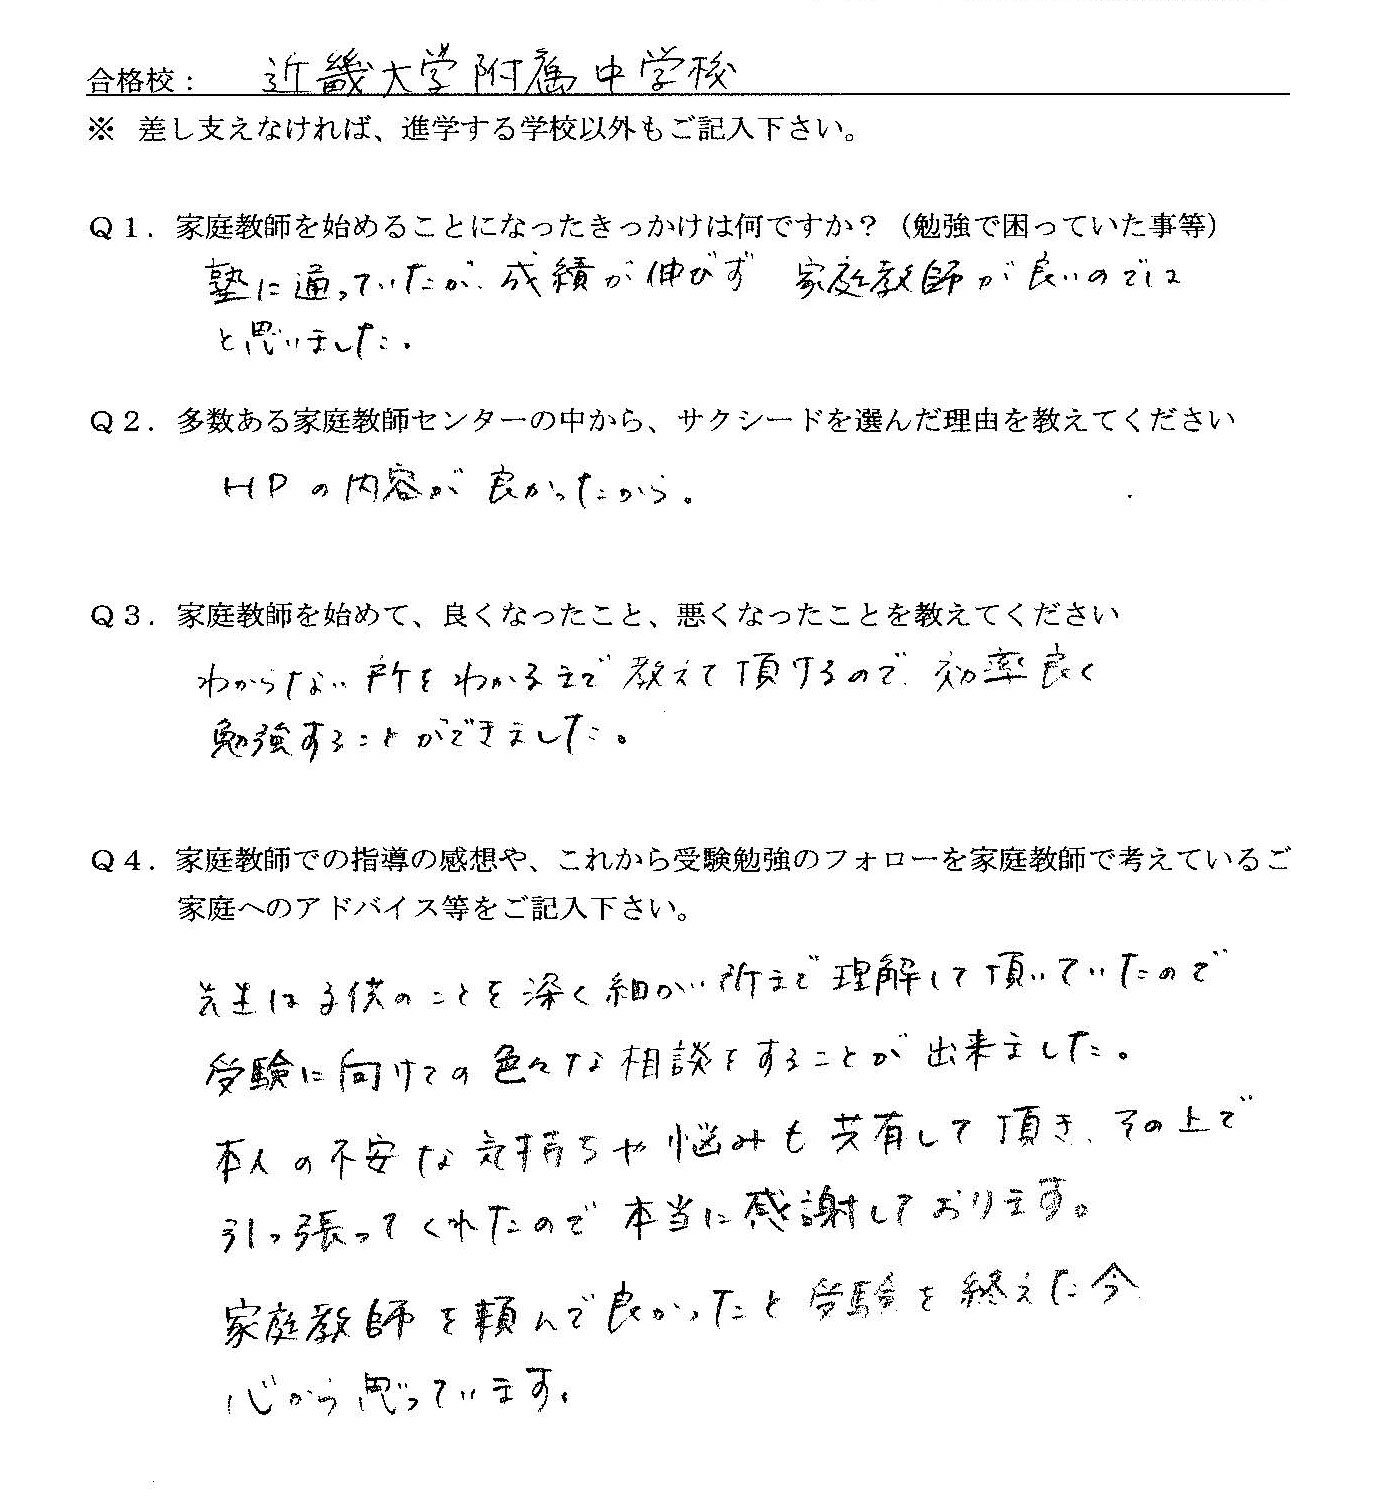 合格校： 近畿大学附属中学校
※ 差し支えなければ、進学する学校以外もご記入下さい。
Ｑ１．家庭教師を始めることになったきっかけは何ですか？（勉強で困っていた事等）
塾に通っていたが、成績が伸びず 家庭教師が良いのでは
と思いました。
Ｑ２．多数ある家庭教師センターの中から、サクシードを選んだ理由を教えてください
HPの内容が良かったから。
Ｑ３．家庭教師を始めて、良くなったこと、悪くなったことを教えてください
わからない所をわかるまで教えて頂けるので、効率良く
勉強することができました。
Ｑ４．家庭教師での指導の感想や、これから受験勉強のフォローを家庭教師で考えているご
家庭へのアドバイス等をご記入下さい。
先生は子供のことを深く細かい所まで理解して頂いていたので
受験に向けての色々な相談をすることが出来ました。
本人の不安な気持ちや悩みも共有して頂き、その上で
引っ張ってくれたので本当に感謝しております。
家庭教師を頼んで良かったと受験を終えた今
心から思っています。